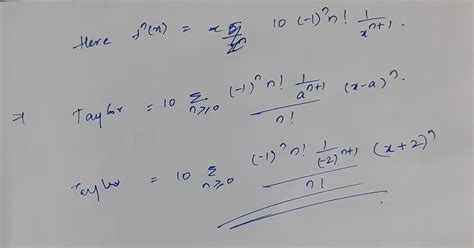 Here fⁿ(x) = 10 (-1)ⁿ n! 1/xⁿ⁺¹.
⇒ Taylor = 10 Σ_{n≥0} ((-1)ⁿ n! 1/aⁿ⁺¹)/n! (x-a)ⁿ.
Taylor = 10 Σ_{n≥0} ((-1)ⁿ n! 1/(-2)ⁿ⁺¹)/n! (x+2)ⁿ